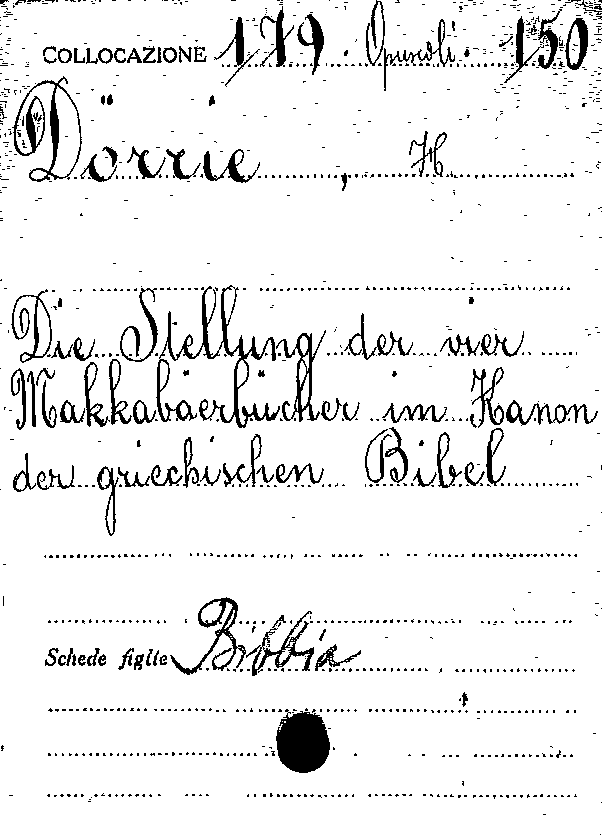 COLLOCAZIONE 1/79. Opuscoli. 150
Dörrie, H
Die Stellung der vier
Makkabäerbücher im Kanon
der griechischen Bibel
Schede figlie Bibbia